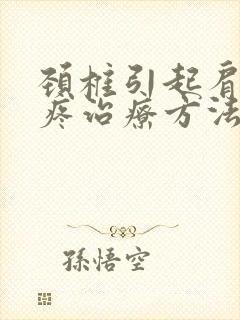 颈椎引起肩
疼治療方法
孫悟空